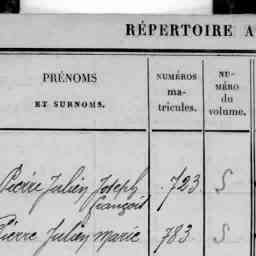 RÉPERTOIRE A
PRÉNOMS
ET SURNOMS.
NUMÉROS
ma-
tricules.
NU-
MÉRO
du
volume.
Pierre Julien Joseph 723 S
François
Pierre Julien Marie 783 S